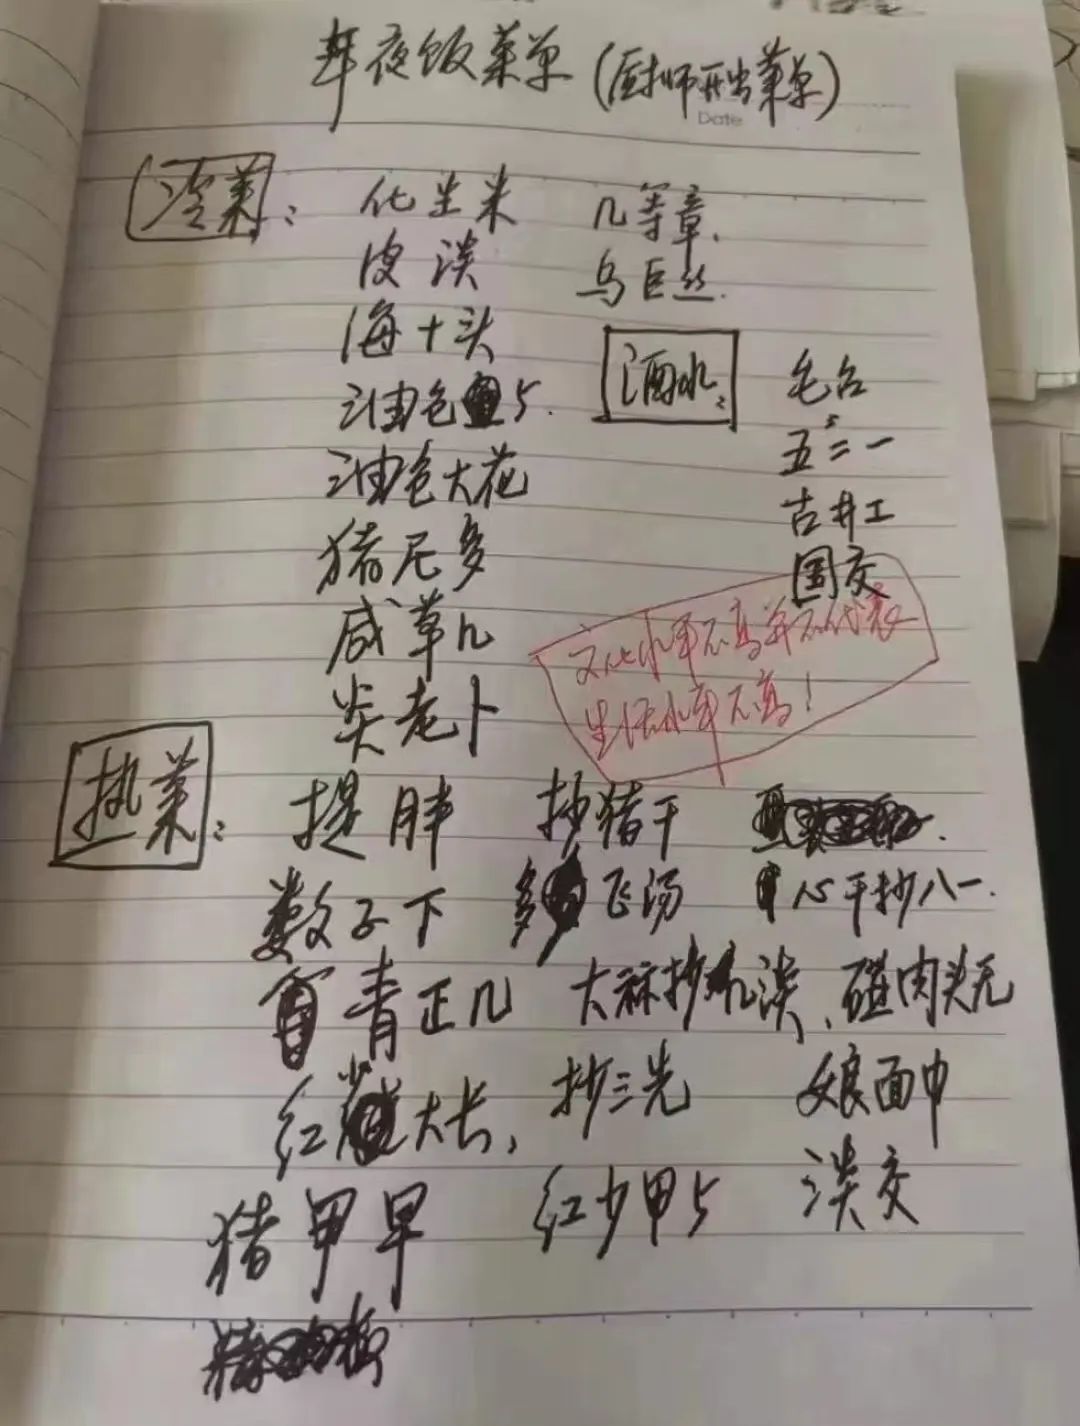 年夜饭菜单(厨师开出菜单)
Date
冷菜: 化生米 几等章.
皮淡 乌巨丝.
海十头
酒水: 毛台
油色 5.
五二一
油色大花
古井工
猪尼多
国交
咸草几
文化水平不高并不代表
生活水平不高!
炎老卜
热菜: 提胖 抄猪干
数子下 多 飞汤 心干抄八一.
青正几 大麻抄几淡、碰肉头元
红 大长, 抄三先 娘面中
猪甲早 红少甲5 淡交